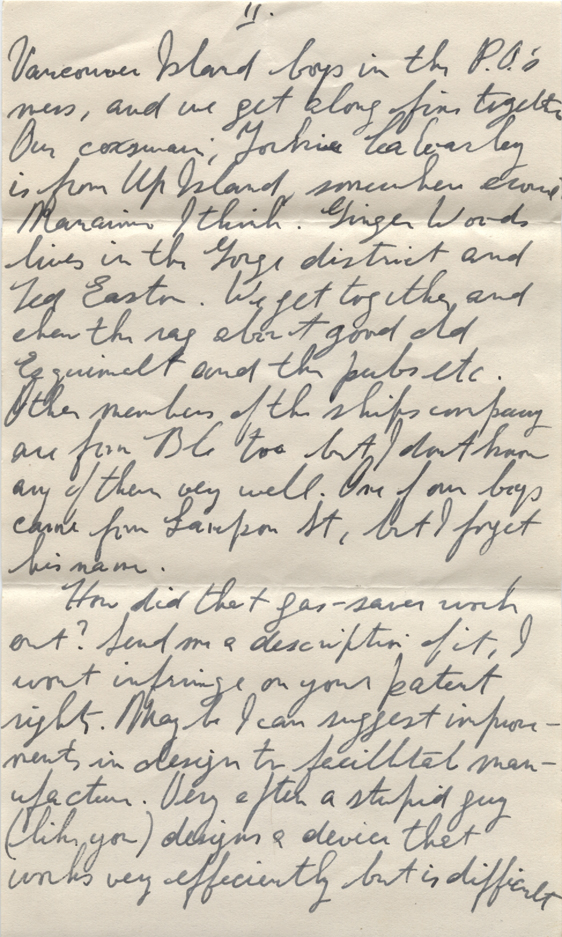 II.
Vancouver Island boys in the P.O.'s
mess, and we get along fine together
Our coxswain, Yorkie
is from Up Island, somewhere around
I think. Ginger Woods
lives in the Gorge district and
Ted Easton. We get together and
chew the rag about good old
Esquimalt and the pubs etc.
Other members of the ships company
are from BC too but I dont know
any of them very well. One of our boys
came from Lampson St, but I forget
his name.
How did that gas-saver work
out? Send me a description of it, I
wont infringe on your patent
right. Maybe I can suggest improve-
ments in design to facilitate man-
ufacture. Very often a stupid guy
(like you) designs a device that
works very efficiently but is difficult